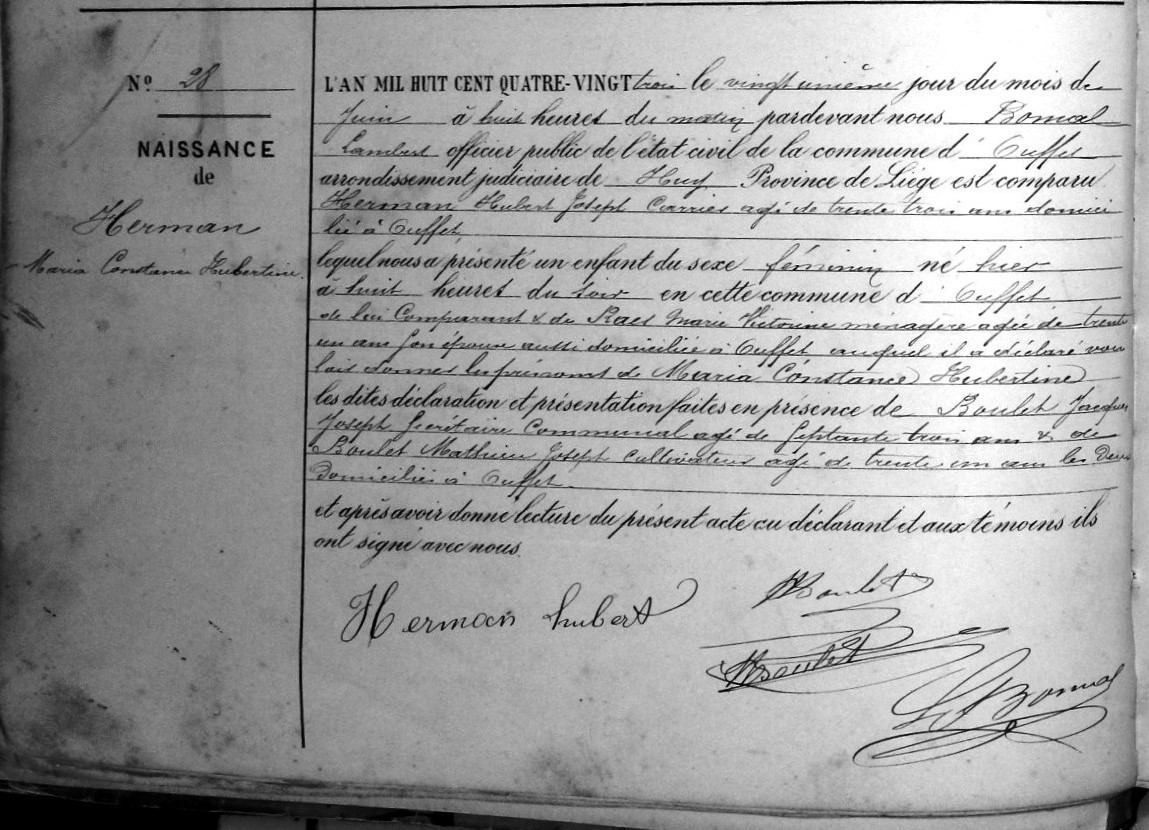 N° 28
NAISSANCE
de
Herman
Maria Constance Hubertine
L'AN MIL HUIT CENT QUATRE-VINGT trois le vingt unième jour du mois de
Juin à huit heures du matin pardevant nous Bomal
Lambert officier public de l'état civil de la commune d' Ouffet
arrondissement judiciaire de Huy Province de Liége est comparu
Herman Hubert Joseph Carrier agé de trente trois ans domici
lié à Ouffet
lequel nous a présenté un enfant du sexe féminin né hier
à huit heures du soir en cette commune d' Ouffet
de lui Comparant & de Raes Marie Victorine ménagère agée de trente
un ans son épouse aussi domiciliée à Ouffet auquel il a déclaré vou
loir donner les prénoms de Maria Constance Hubertine
les dites déclaration et présentation faites en présence de Boulet Jacques
Joseph Secrétaire Communal agé de septante trois ans & de
Boulet Mathieu Joseph cultivateur agé de trente un ans les deux
domiciliés à Ouffet
et après avoir donné lecture du présent acte au déclarant et aux témoins ils
ont signé avec nous.
Herman hubert
Boulet
Boulet
Bomal